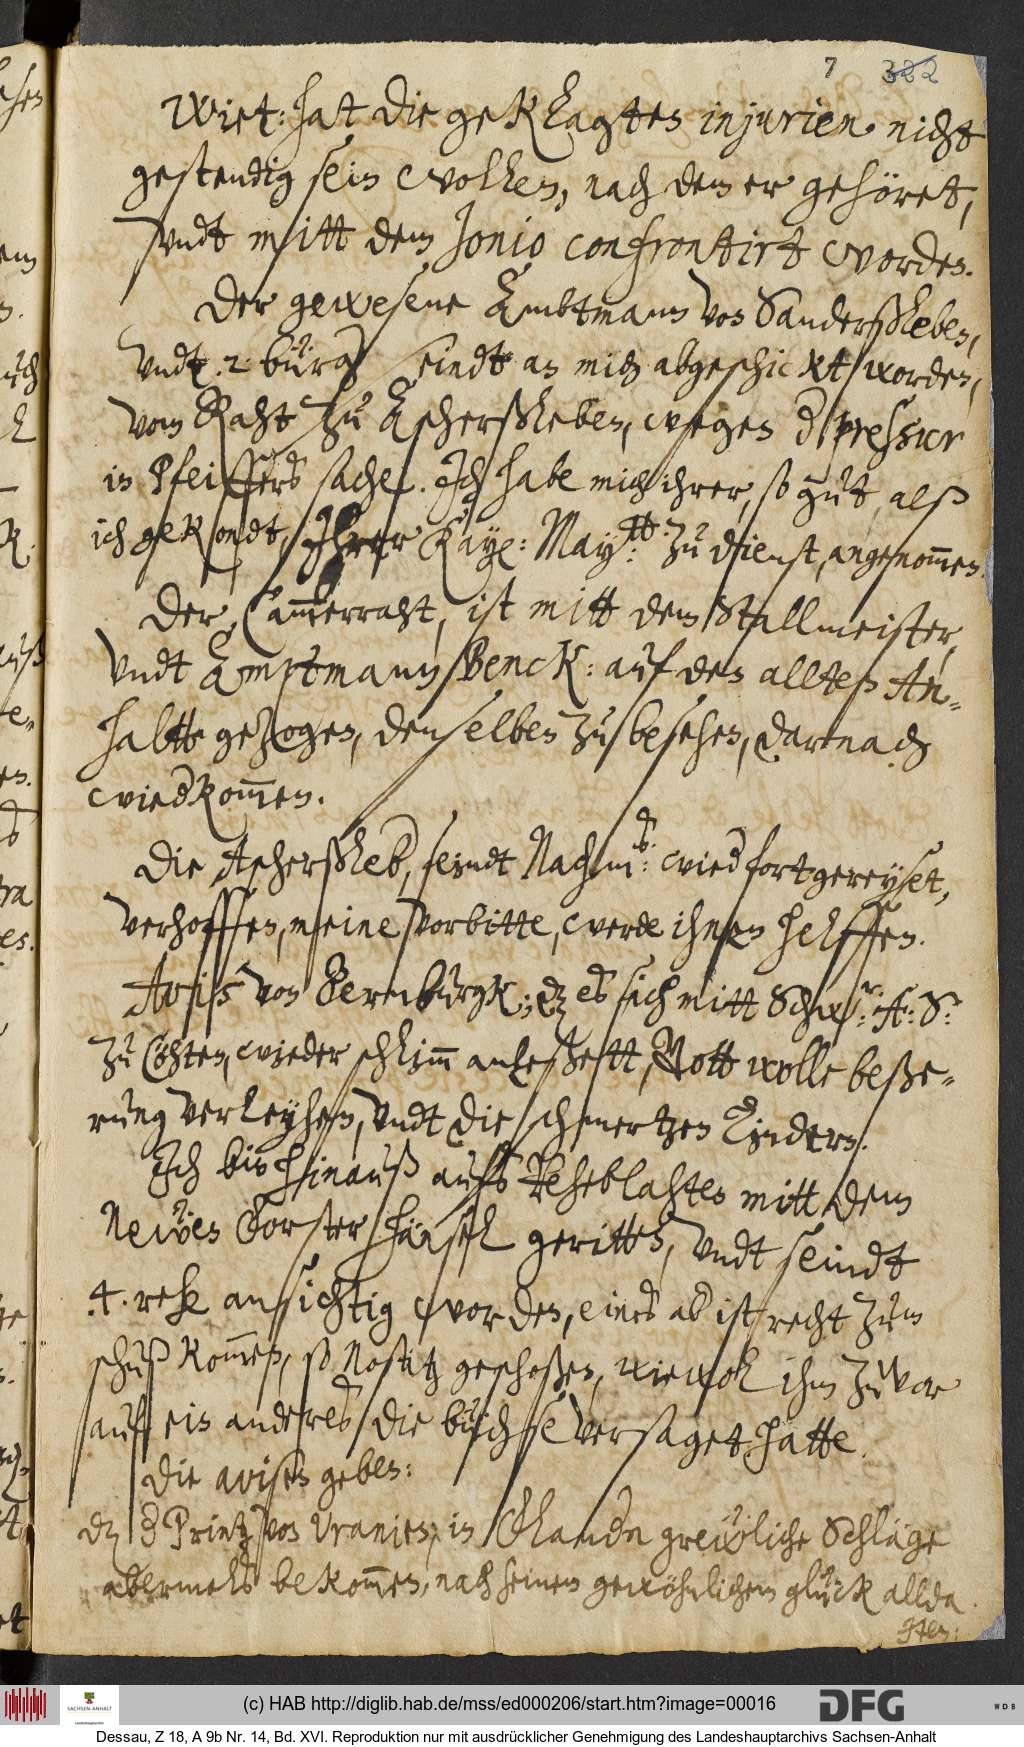 7 322
Wiet: hat die geklagten injurien nicht
gestendig sein wollen, nach dem er gehöret,
undt mitt dem Jonio confrontirt worden.
Der gewesene Ambtmann von Sanderßleben,
undt .2. bürg seindt an mich abgeschickt worden,
vom Raht zu Ascherßleben, wegen d pressur
in Pfeiffers sache. Ich habe mich ihrer, so gut, alß
ich gekondt, Ihrer Kayß: May:tt zu dienst, angenommen.
Der Cammerraht, ist mitt dem Stallmeister,
undt Amptmann Benck: auf den allten An-
haltt gezogen, denselben zu besehen, darnach
wied kommen.
Die Ascherßleb, seindt Nachm: wied fortgereyset,
verhoffen, meine vorbitte, werde ihnen helffen.
Aviß von Bernburgk; dz es sich mitt Schw: A: S:
zu Cöhten, wieder schlimm anleßett, Gott wolle beße-
rung verleyhen, undt die schmertzen lindern.
Ich bin hinauß aufs Reheblahten mitt dem
Newen Forster geritten, undt seindt
.4. rehe ansichtig worden, eines ab ist recht zum
schuß kommen, so Nostitz geschoßen, wiewol ihm zuvor
auf ein anderes die büchse versaget hatte.
Die avisen geben:
dz d Printz von Uranien, in Flandn grewliche Schläge
abermals bekommen, nach seinem gewöhnlichem glück allda
(c) HAB http://diglib.hab.de/mss/ed000206/start.htm?image=00016
SACHSEN-ANHALT
DFG
WDB
Dessau, Z 18, A 9b Nr. 14, Bd. XVI. Reproduktion nur mit ausdrücklicher Genehmigung des Landeshauptarchivs Sachsen-Anhalt